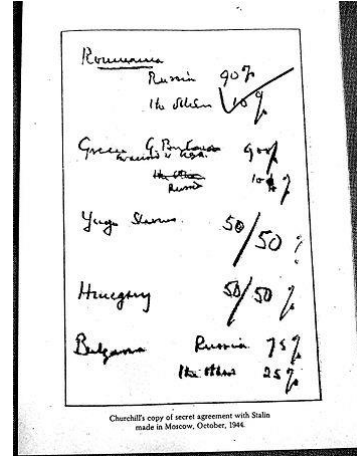 Roumania
Russia 90%
The others 10%
Greece G. Britain 90%
in accord with U.S.A.
The others
Russia 10%
Yugo Slavia 50/50 %
Hungary 50/50 %
Bulgaria
Russia 75%
The others 25%
Churchill's copy of secret agreement with Stalin
made in Moscow, October, 1944.